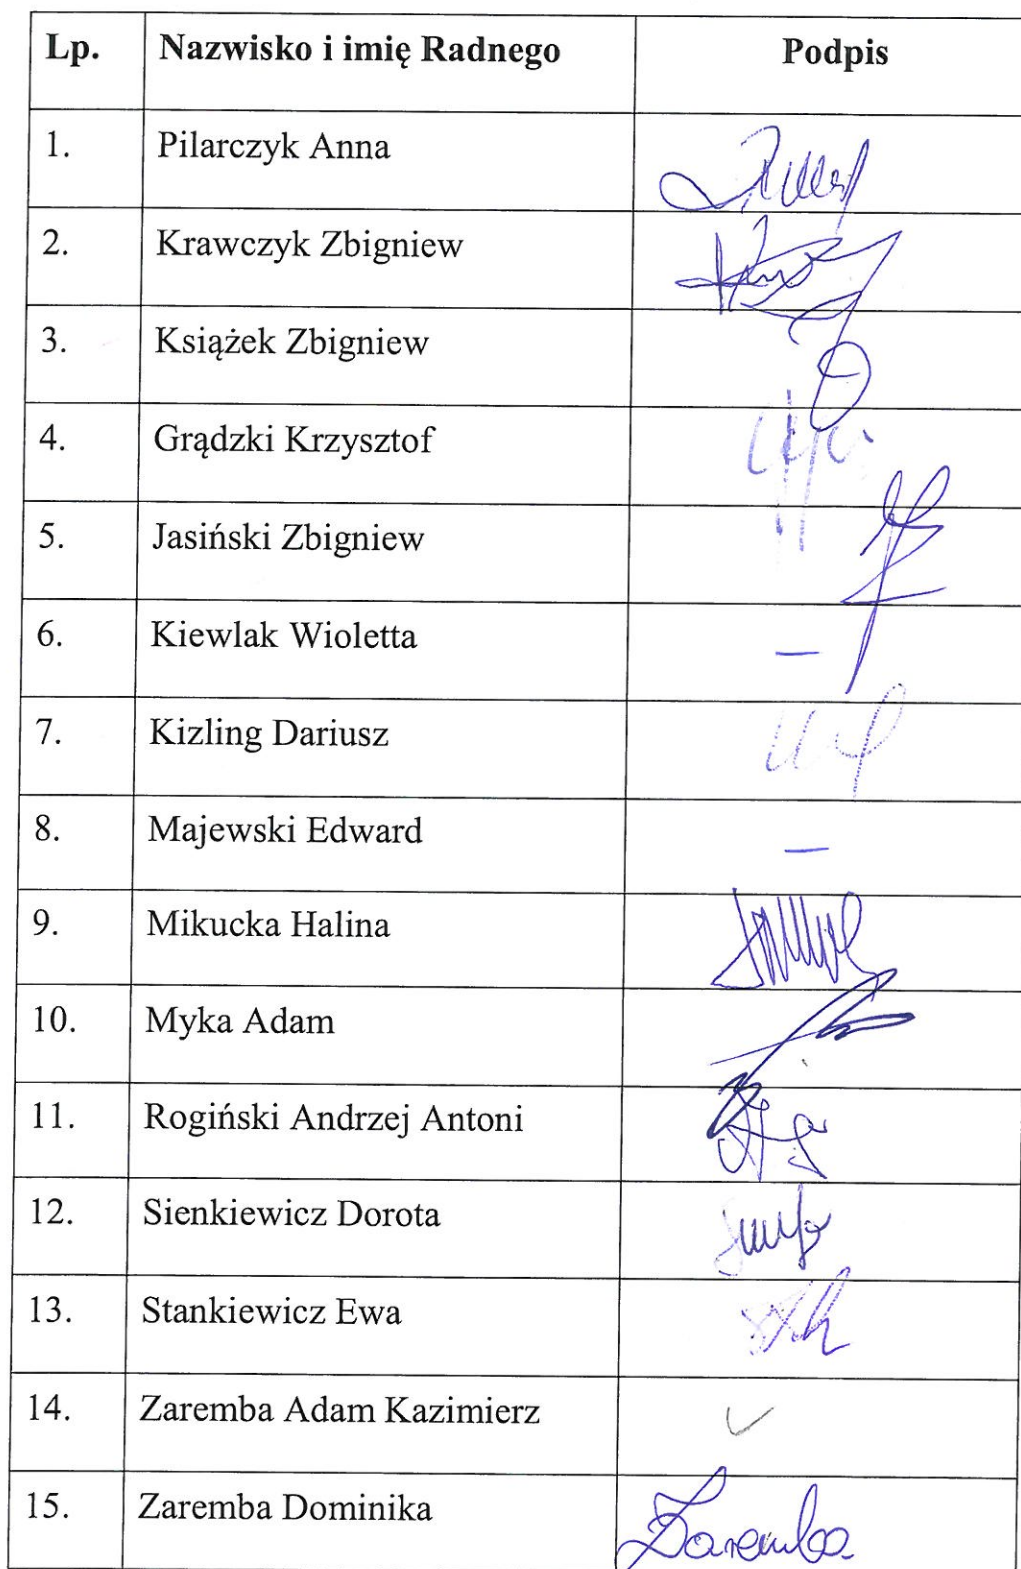 Lp. Nazwisko i imię Radnego Podpis
1. Pilarczyk Anna
2. Krawczyk Zbigniew
3. Książek Zbigniew
4. Grądzki Krzysztof
5. Jasiński Zbigniew
6. Kiewlak Wioletta –
7. Kizling Dariusz
8. Majewski Edward –
9. Mikucka Halina
10. Myka Adam
11. Rogiński Andrzej Antoni
12. Sienkiewicz Dorota
13. Stankiewicz Ewa
14. Zaremba Adam Kazimierz ✓
15. Zaremba Dominika Zaremba